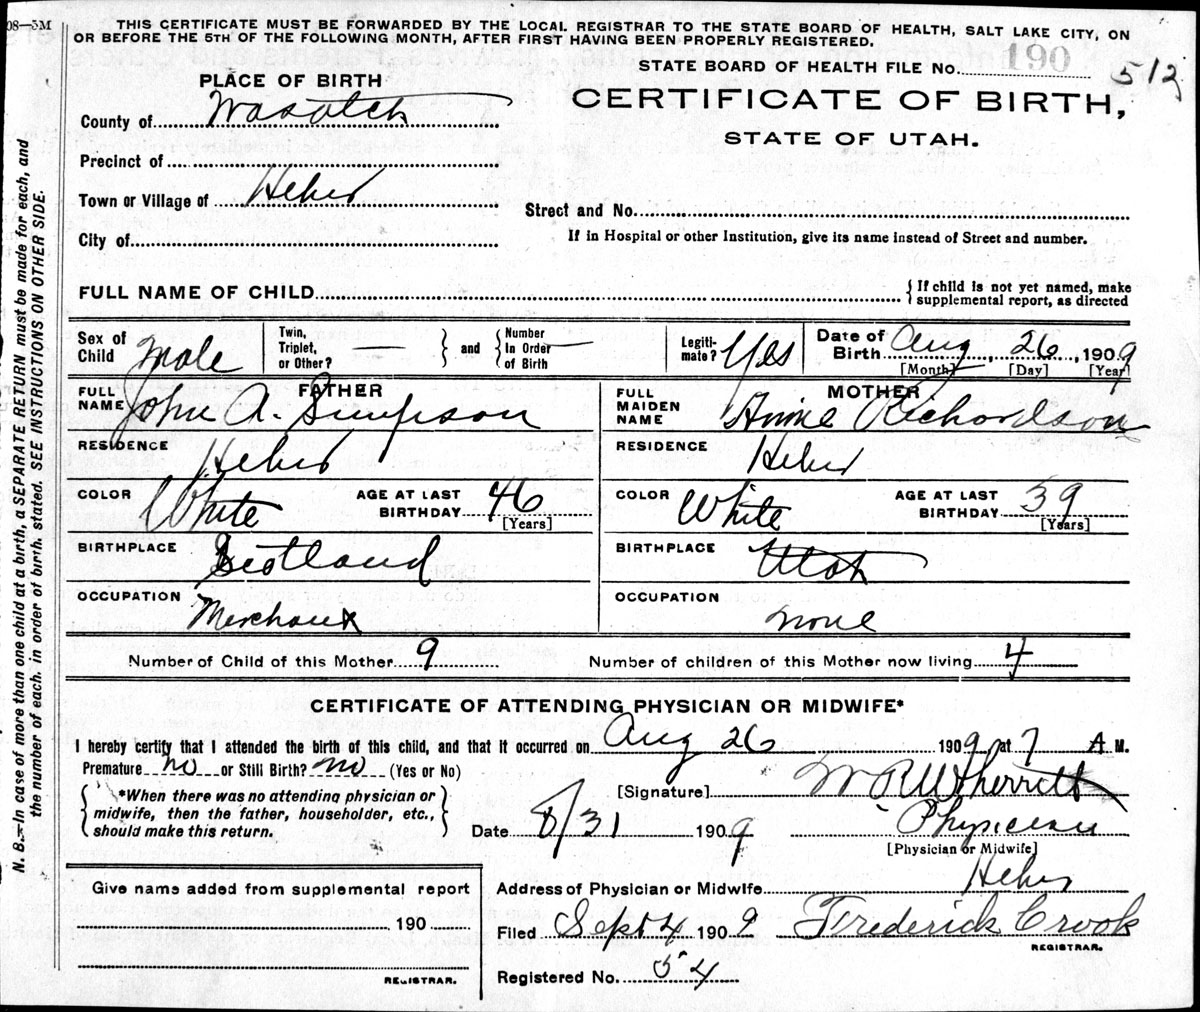 08—5M
THIS CERTIFICATE MUST BE FORWARDED BY THE LOCAL REGISTRAR TO THE STATE BOARD OF HEALTH, SALT LAKE CITY, ON
OR BEFORE THE 5TH OF THE FOLLOWING MONTH, AFTER FIRST HAVING BEEN PROPERLY REGISTERED.
STATE BOARD OF HEALTH FILE No. 190 512
PLACE OF BIRTH
CERTIFICATE OF BIRTH,
STATE OF UTAH.
County of Wasatch
Precinct of
Town or Village of Heber
City of
Street and No.
If in Hospital or other Institution, give its name instead of Street and number.
FULL NAME OF CHILD
{ If child is not yet named, make
supplemental report, as directed
Sex of Child Male
Twin, Triplet, or Other? — } and { Number In Order of Birth —
Legiti-mate? Yes
Date of Birth Aug, 26, 1909
[Month] [Day] [Year]
FATHER
FULL NAME John A. Simpson
MOTHER
FULL MAIDEN NAME Annie Richardson
RESIDENCE Heber
RESIDENCE Heber
COLOR White AGE AT LAST BIRTHDAY 46 [Years]
COLOR White AGE AT LAST BIRTHDAY 39 [Years]
BIRTHPLACE Scotland
BIRTHPLACE Utah
OCCUPATION Merchant
OCCUPATION none
Number of Child of this Mother 9 Number of children of this Mother now living 4
CERTIFICATE OF ATTENDING PHYSICIAN OR MIDWIFE*
I hereby certify that I attended the birth of this child, and that it occurred on Aug 26 1909 at 7 A M.
Premature no or Still Birth? no (Yes or No)
{ *When there was no attending physician or
midwife, then the father, householder, etc.,
should make this return. }
[Signature] W R Wherritt
Date 8/31 1909 Physician
[Physician or Midwife]
Address of Physician or Midwife Heber
Filed Sept 4 1909 Frederick Crook
REGISTRAR.
Registered No. 54
Give name added from supplemental report
190
REGISTRAR.
N. B.—In case of more than one child at a birth, a SEPARATE RETURN must be made for each, and
the number of each, in order of birth, stated. SEE INSTRUCTIONS ON OTHER SIDE.